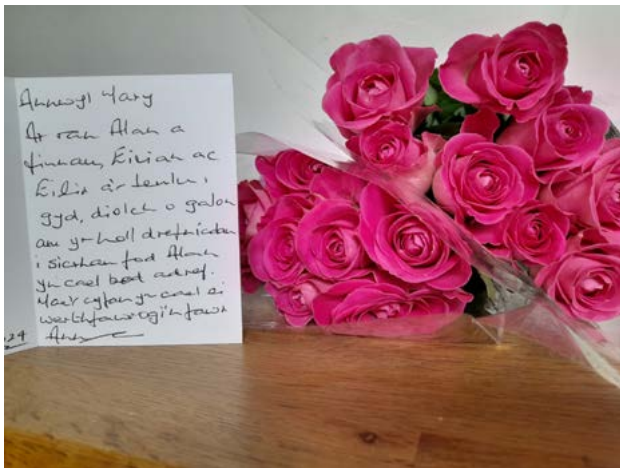 Annwyl Mary
Ar ran Alan a
finnau, Eirian ac
Eilir a'r teulu i
gyd, diolch o galon
am yr holl drefniadau
i sicrhau fod Alan
yn cael bod adref.
Mae'r cyfan yn cael ei
werthfawrogi'n fawr
Ann
.24